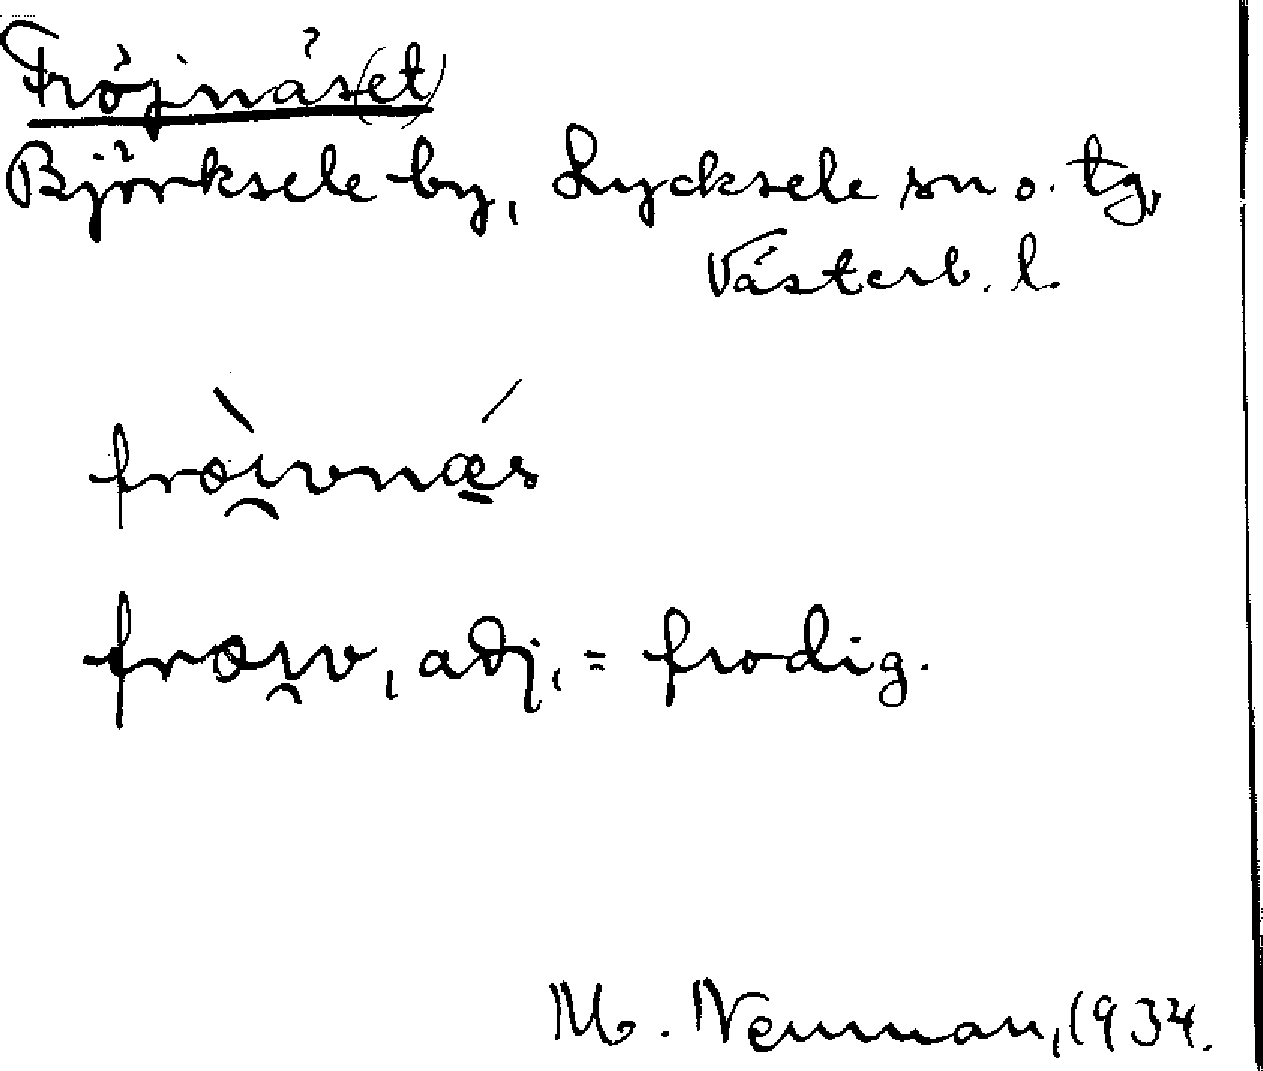 Fröjnäs(et)
Björksele by, Lycksele sn o. tg,
Västerb. l.
fròi̯vnǽs
frœi̯v, adj, = frodig.
M. Nenman, 1934.